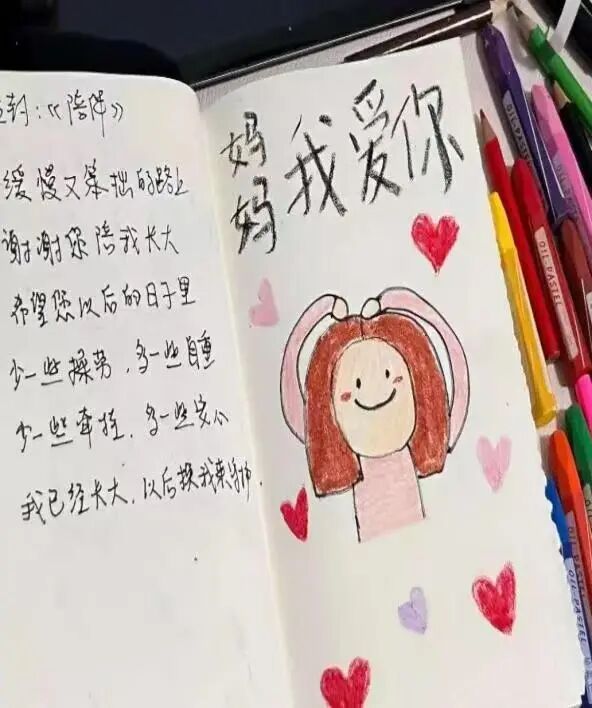 封:《陪伴》
缓慢又笨拙的路上
谢谢你陪我长大
希望您以后的日子里
少一些操劳,多一些自
少一些牵挂,多一些安心
我已经长大,以后换我来守护.
妈妈我爱你
OIL-PASTEL
OIL-PASTEL
OIL-PASTEL